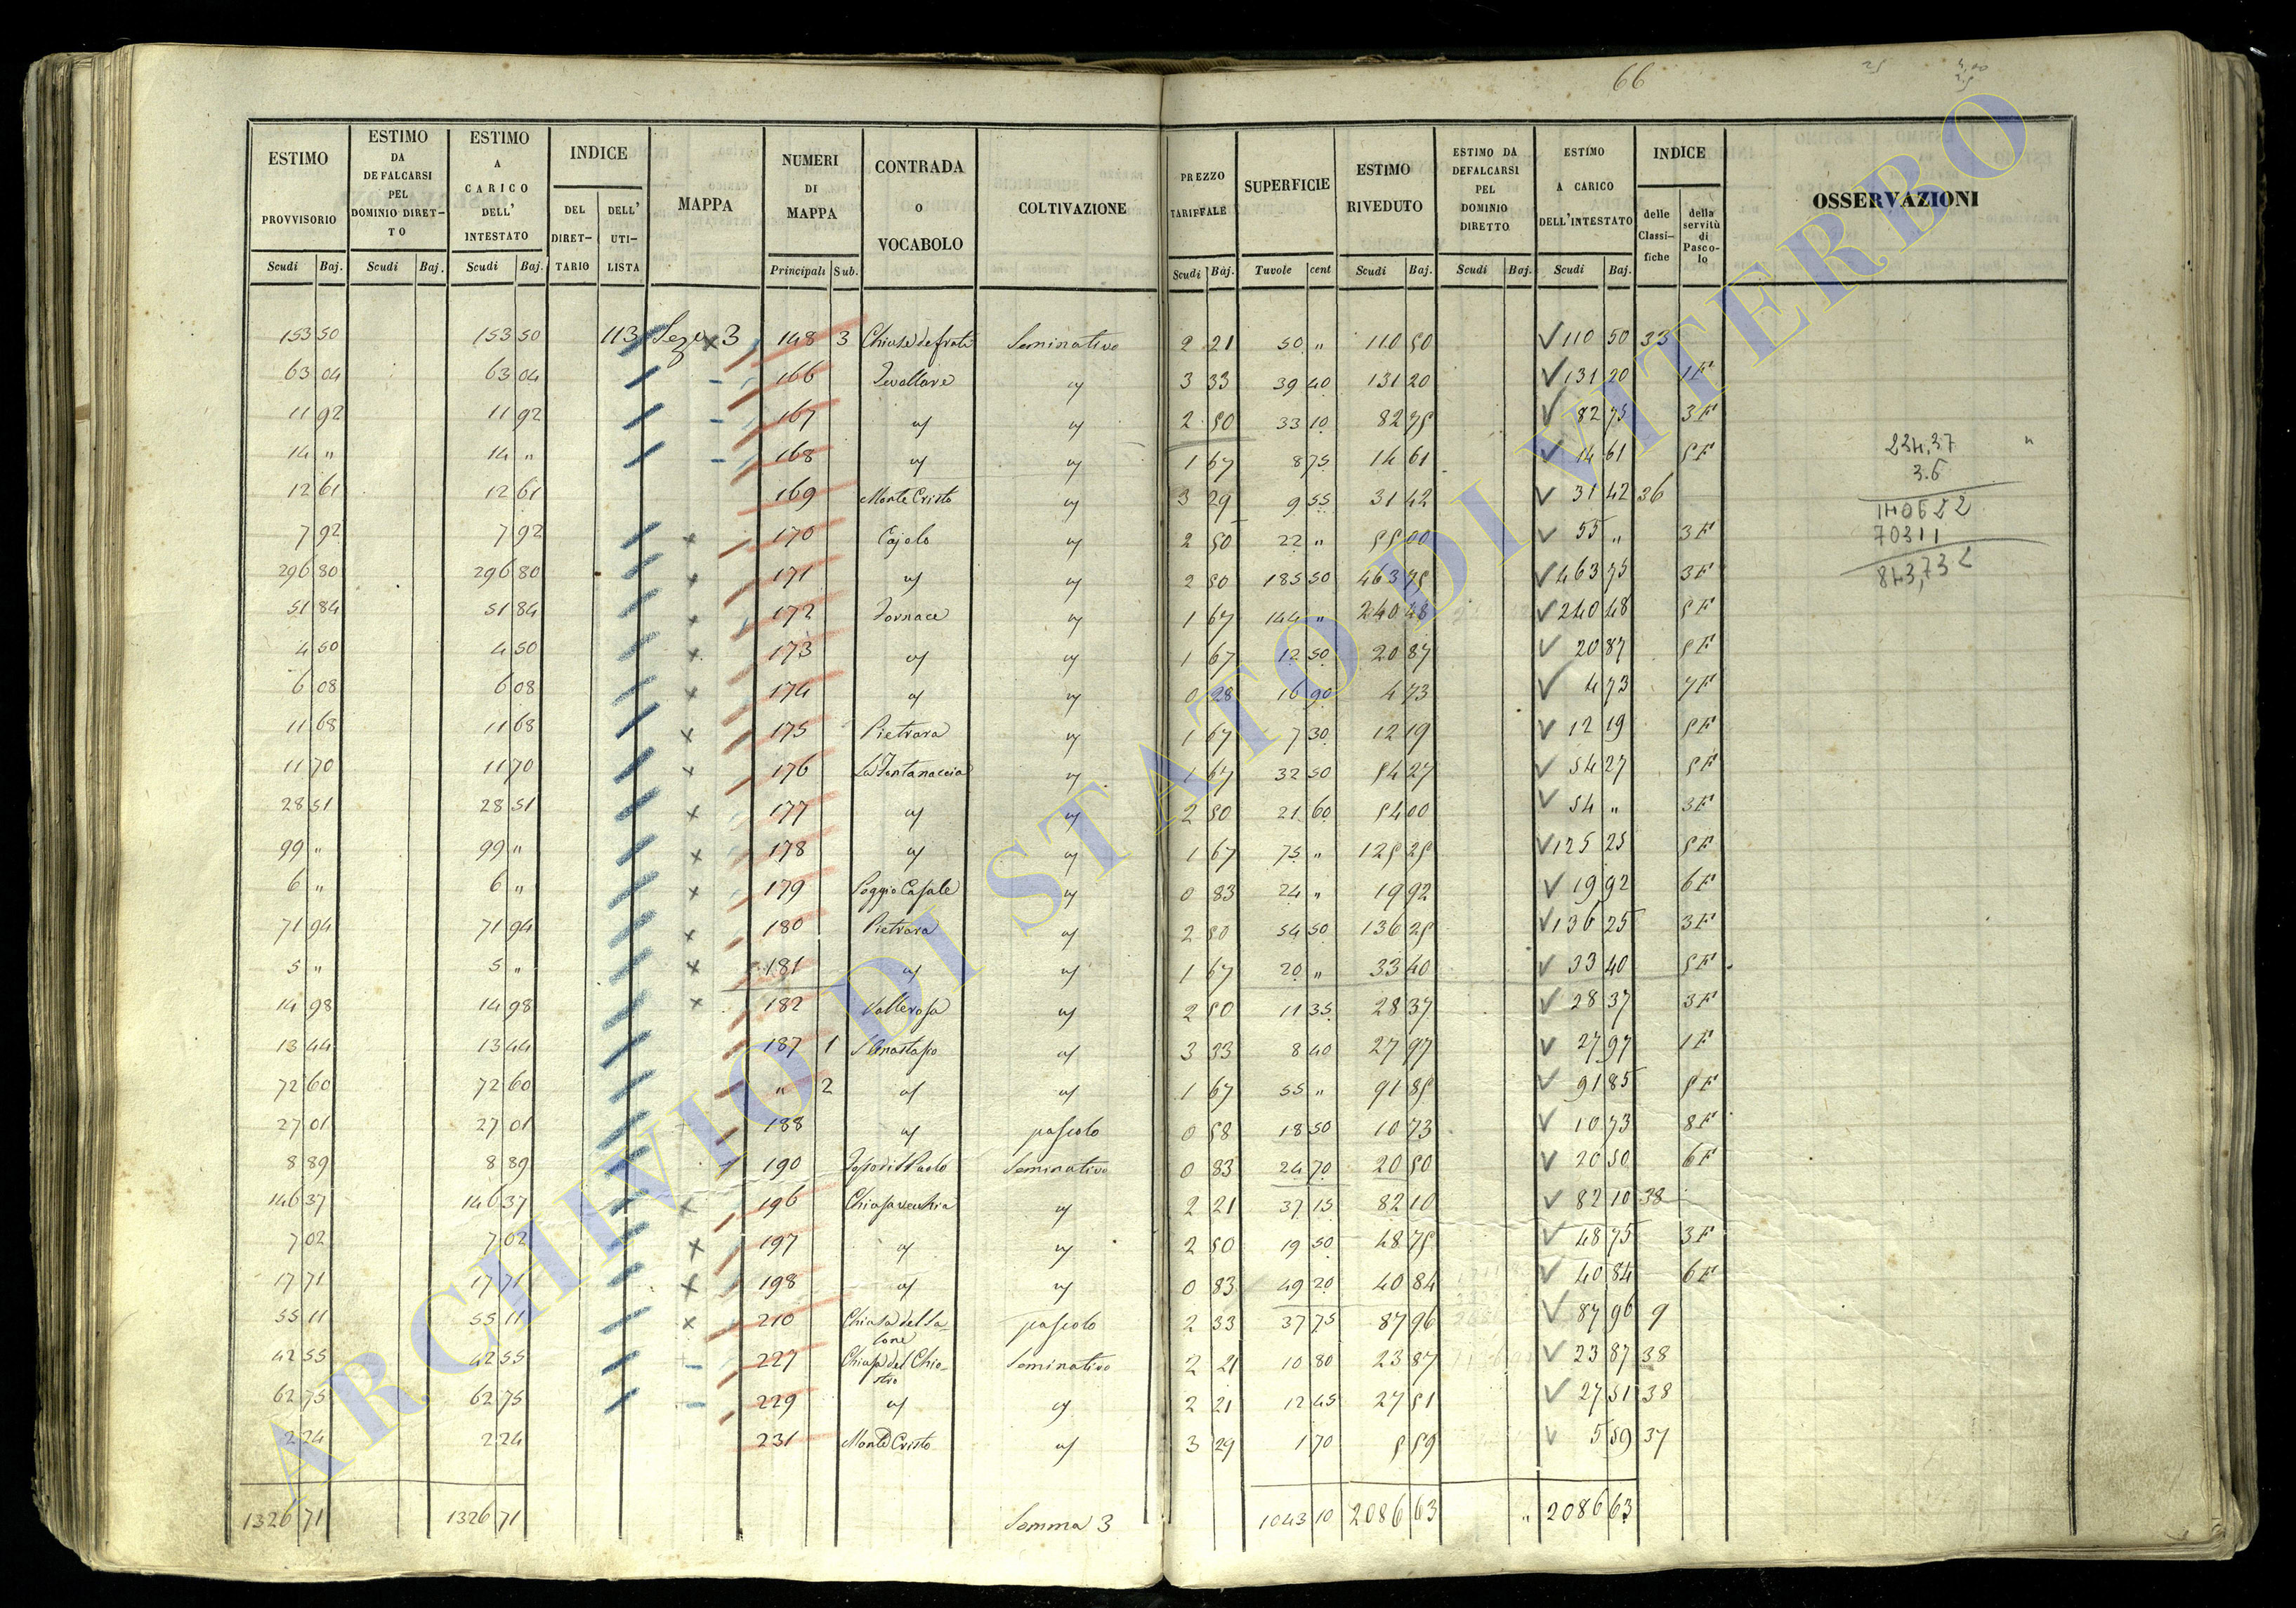 66
25
ESTIMO PROVVISORIO Scudi Baj. | ESTIMO DA DEFALCARSI PEL DOMINIO DIRETTO Scudi Baj. | ESTIMO A CARICO DELL'INTESTATO Scudi Baj. | INDICE DEL DIRETTARIO DELL'UTILISTA | MAPPA | NUMERI DI MAPPA Principali Sub. | CONTRADA o VOCABOLO | COLTIVAZIONE | PREZZO TARIFFALE Scudi Baj. | SUPERFICIE Tavole cent | ESTIMO RIVEDUTO Scudi Baj. | ESTIMO DA DEFALCARSI PEL DOMINIO DIRETTO Scudi Baj. | ESTIMO A CARICO DELL'INTESTATO Scudi Baj. | INDICE delle Classifiche della servitù di Pascolo | OSSERVAZIONI
153 50 153 50 113 Seze 3 148 3 Chiuse de frati Seminativo 2 21 50 " 110 50 110 50 33
63 04 63 04 166 3 33 39 40 131 20 131 20 1F
11 92 11 92 167 2 50 33 10 82 75 82 75 3F
14 " 14 " 168 1 67 8 75 14 61 14 61 5F
12 61 12 61 169 Monte Cristo 3 29 9 55 31 42 31 42 36
7 92 7 92 170 Cajolo 2 50 22 " 55 00 55 " 3F
296 80 296 80 171 2 50 185 50 463 75 463 75 3F
51 84 51 84 172 Fornace 1 67 144 " 240 48 240 48 5F
4 50 4 50 173 1 67 12 50 20 87 20 87 5F
6 08 6 08 174 0 28 16 90 4 73 4 73 7F
11 68 11 68 175 Pietrara 1 67 7 30 12 19 12 19 5F
11 70 11 70 176 La Fontanaccia 1 67 32 50 54 27 54 27 5F
28 51 28 51 177 2 50 21 60 54 00 54 " 3F
99 " 99 " 178 1 67 75 " 125 25 125 25 5F
6 " 6 " 179 Poggio Casale 0 83 24 " 19 92 19 92 6F
71 94 71 94 180 Pietrara 2 50 54 50 136 25 136 25 3F
5 " 5 " 181 1 67 20 " 33 40 33 40 5F
14 98 14 98 182 Vallerosa 2 50 11 35 28 37 28 37 3F
13 44 13 44 187 1 S Anastasio 3 33 8 40 27 97 27 97 1F
72 60 72 60 " 2 1 67 55 " 91 85 91 85 5F
27 01 27 01 188 pascolo 0 58 18 50 10 73 10 73 8F
8 89 8 89 190 Seminativo 0 83 24 70 20 50 20 50 6F
146 37 146 37 196 Chiusa vecchia 2 21 37 15 82 10 82 10 38
7 02 7 02 197 2 50 19 50 48 75 48 75 3F
17 71 17 71 198 0 83 49 20 40 84 40 84 6F
55 11 55 11 210 pascolo 2 33 37 75 87 96 87 96 9
42 55 42 55 227 Chiusa del Chiostro Seminativo 2 21 10 80 23 87 23 87 38
62 75 62 75 229 2 21 12 45 27 51 27 51 38
2 24 2 24 231 Monte Cristo 3 29 1 70 5 59 5 59 37
1326 71 1326 71 Somma 3 1043 10 2086 63 " 2086 63
234,37
3.6
140622
70311
843,732
ARCHIVIO DI STATO DI VITERBO